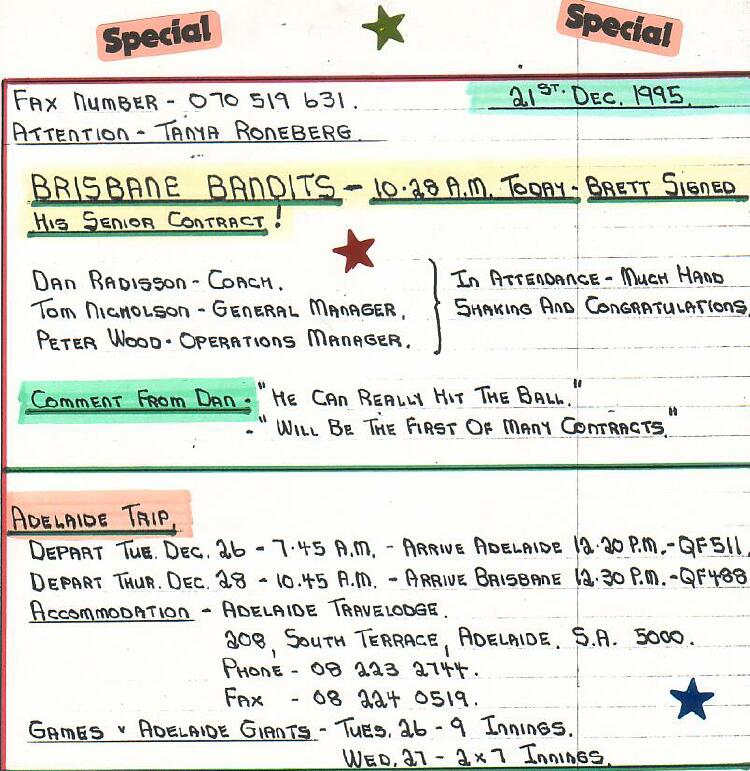 Special Special
FAX NUMBER - 070 519 631. 21ST. DEC. 1995.
ATTENTION - TANYA RONEBERG
BRISBANE BANDITS - 10.28 A.M. TODAY - BRETT SIGNED
HIS SENIOR CONTRACT!
DAN RADISSON - COACH. IN ATTENDANCE - MUCH HAND
TOM NICHOLSON - GENERAL MANAGER. SHAKING AND CONGRATULATIONS.
PETER WOOD - OPERATIONS MANAGER.
COMMENT FROM DAN - "HE CAN REALLY HIT THE BALL."
- "WILL BE THE FIRST OF MANY CONTRACTS"
ADELAIDE TRIP.
DEPART TUE. DEC. 26 - 7.45 A.M. - ARRIVE ADELAIDE 12.20 P.M. - QF511
DEPART THUR. DEC. 28 - 10.45 A.M. - ARRIVE BRISBANE 12.30 P.M. - QF488
ACCOMMODATION - ADELAIDE TRAVELODGE.
208, SOUTH TERRACE, ADELAIDE. S.A. 5000.
PHONE - 08 223 2744.
FAX - 08 224 0519.
GAMES v ADELAIDE GIANTS - TUES. 26 - 9 INNINGS.
WED. 27 - 2x7 INNINGS.